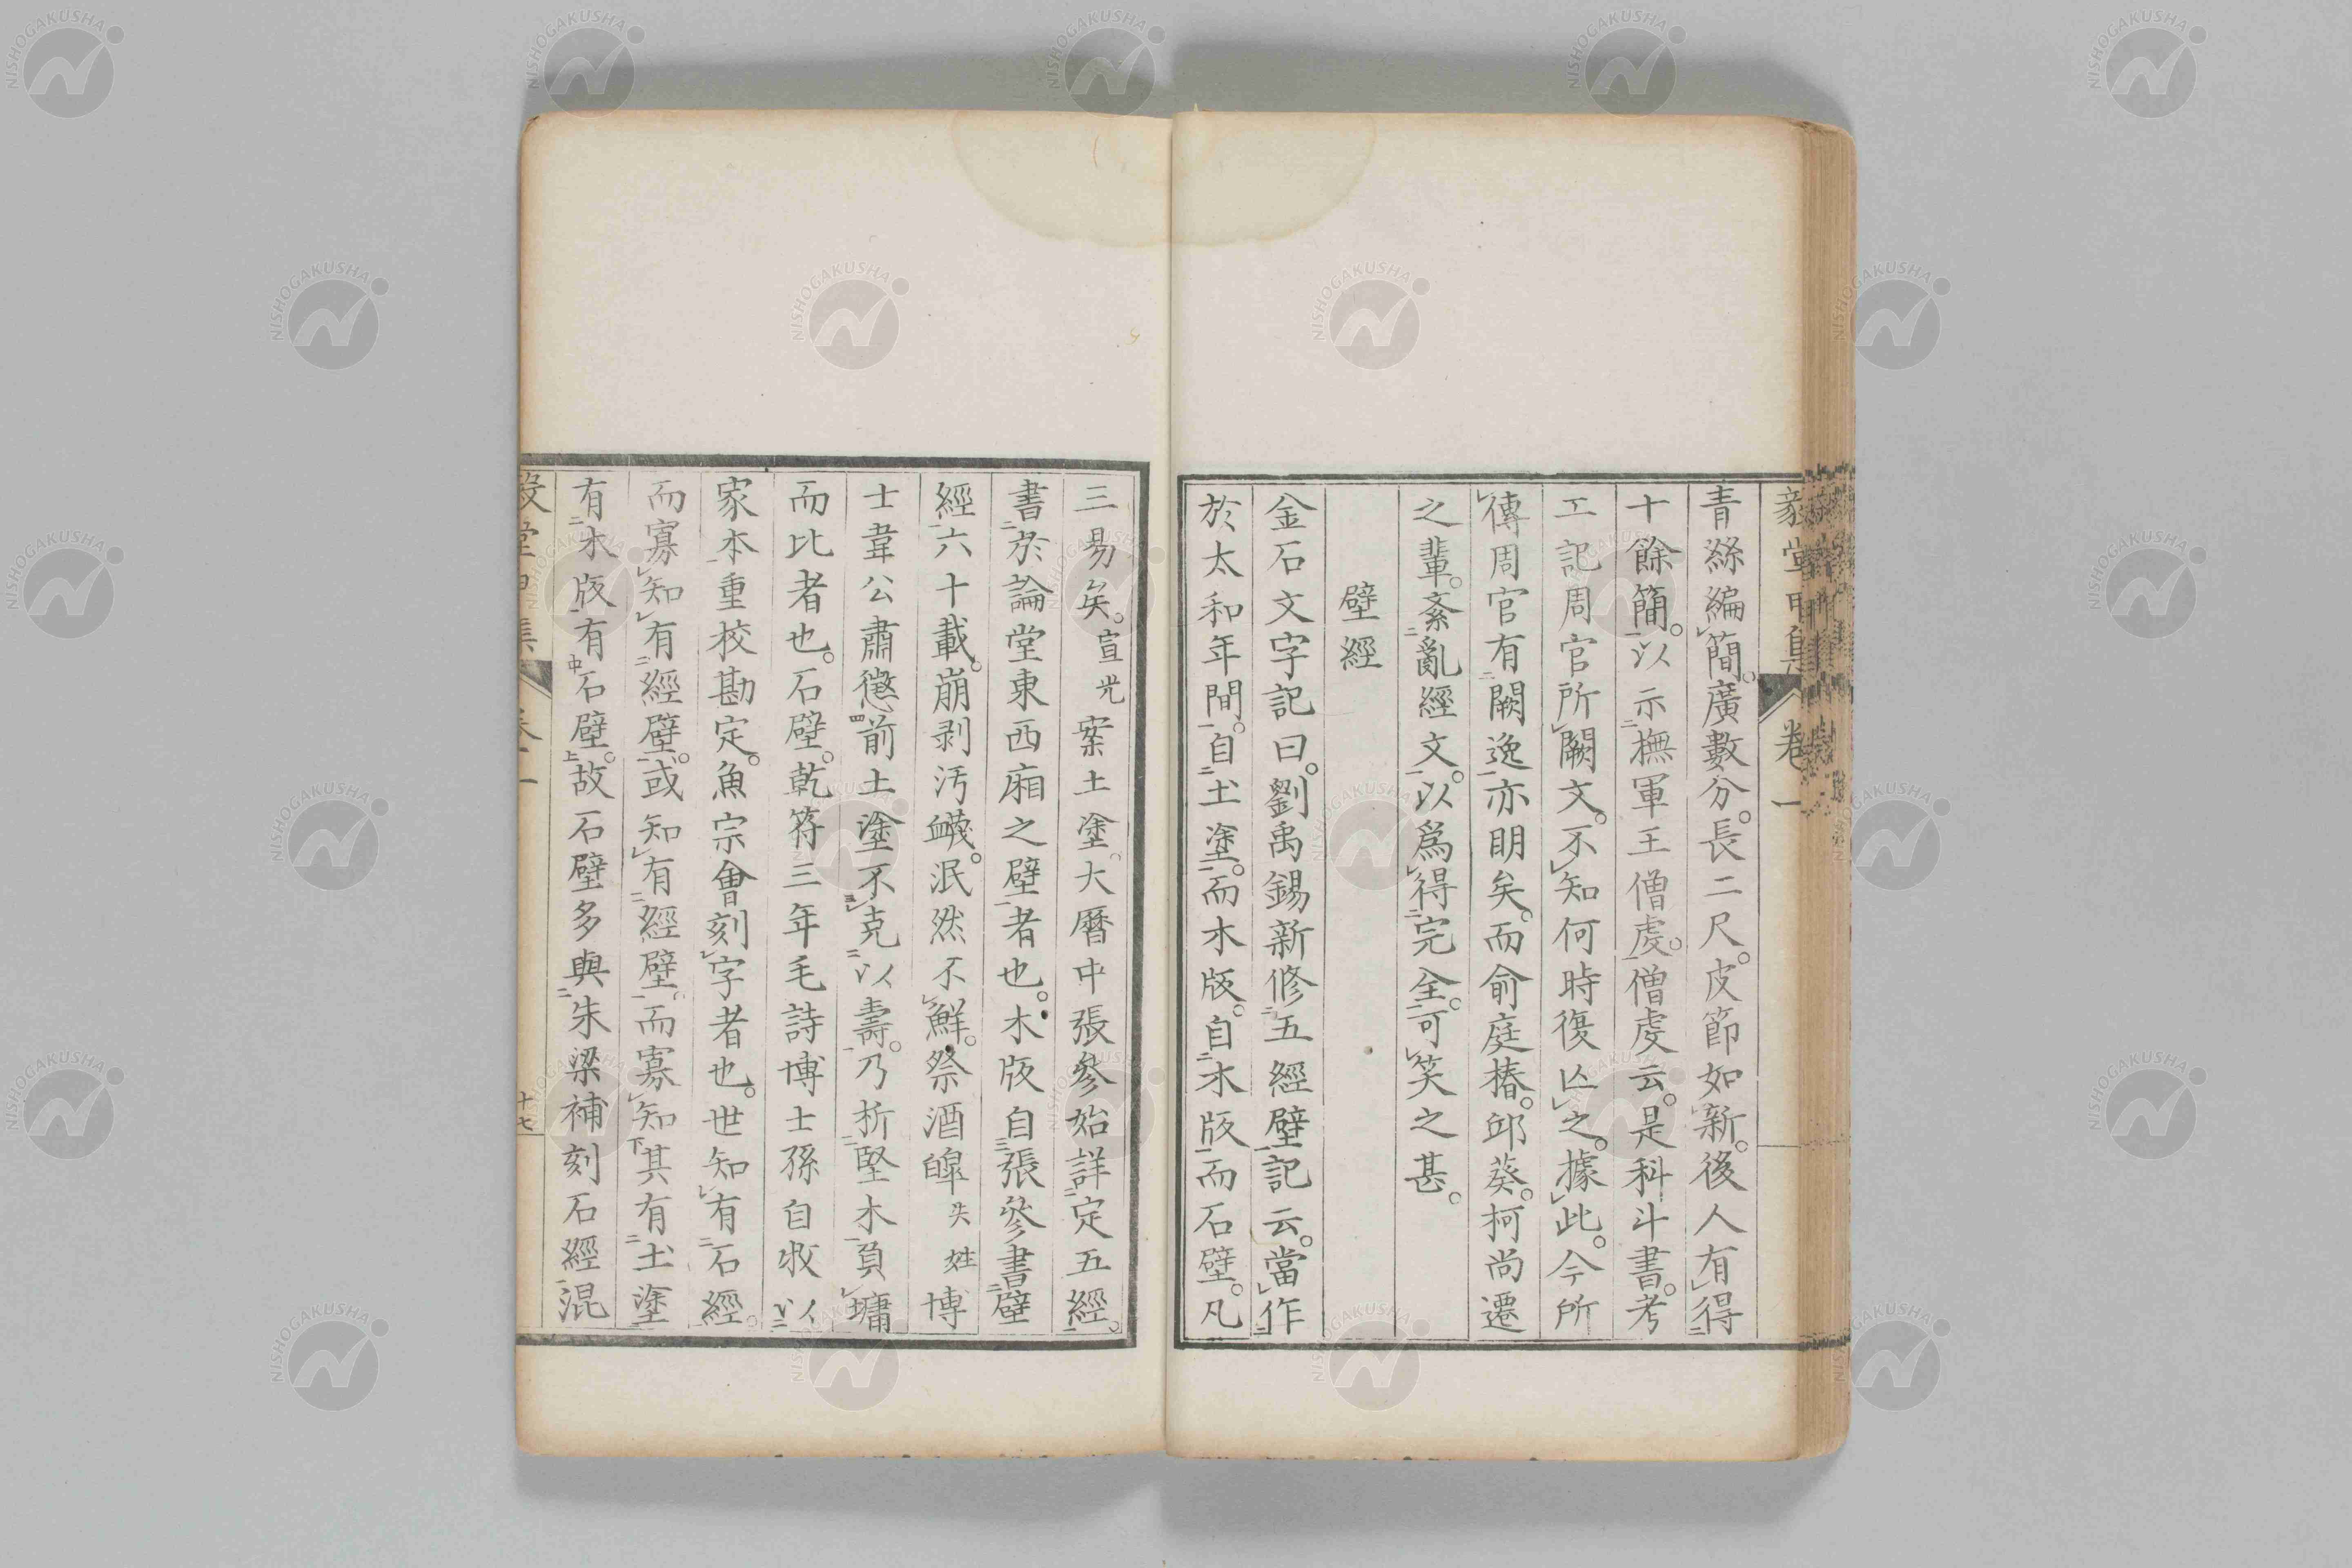 毅堂甲集 卷一
青絲編簡。廣數分。長二尺。皮節如新。後人有得
十餘簡。以示撫軍王僧虔。僧虔云。是科斗書。考
工記周官所闕文。不知何時復亾之。據此。今所
傳周官有闕逸亦明矣。而俞庭椿。邱葵。柯尚遷
之輩。紊亂經文。以爲得完全。可笑之甚。
壁經
金石文字記曰。劉禹錫新修五經壁記云。當作
於太和年間。自土塗。而木版。自木版而石壁。凡
三易矣。宣光案土塗。大曆中張參始詳定五經。
書於論堂東西廂之壁者也。木版自張參書壁
經六十載。崩剥汚衊。泯然不鮮。祭酒皥失姓博
士韋公肅懲前土塗不克以壽。乃析堅木負墉
而比者也。石壁。乾符三年毛詩博士孫自牧以
家本重校勘定。魚宗會刻字者也。世知有石經。
而寡知有經壁。或知有經壁。而寡知其有土塗
有木版有石壁。故石壁多與朱梁補刻石經混
毅堂甲集 卷一 十七
NISHOGAKUSHA